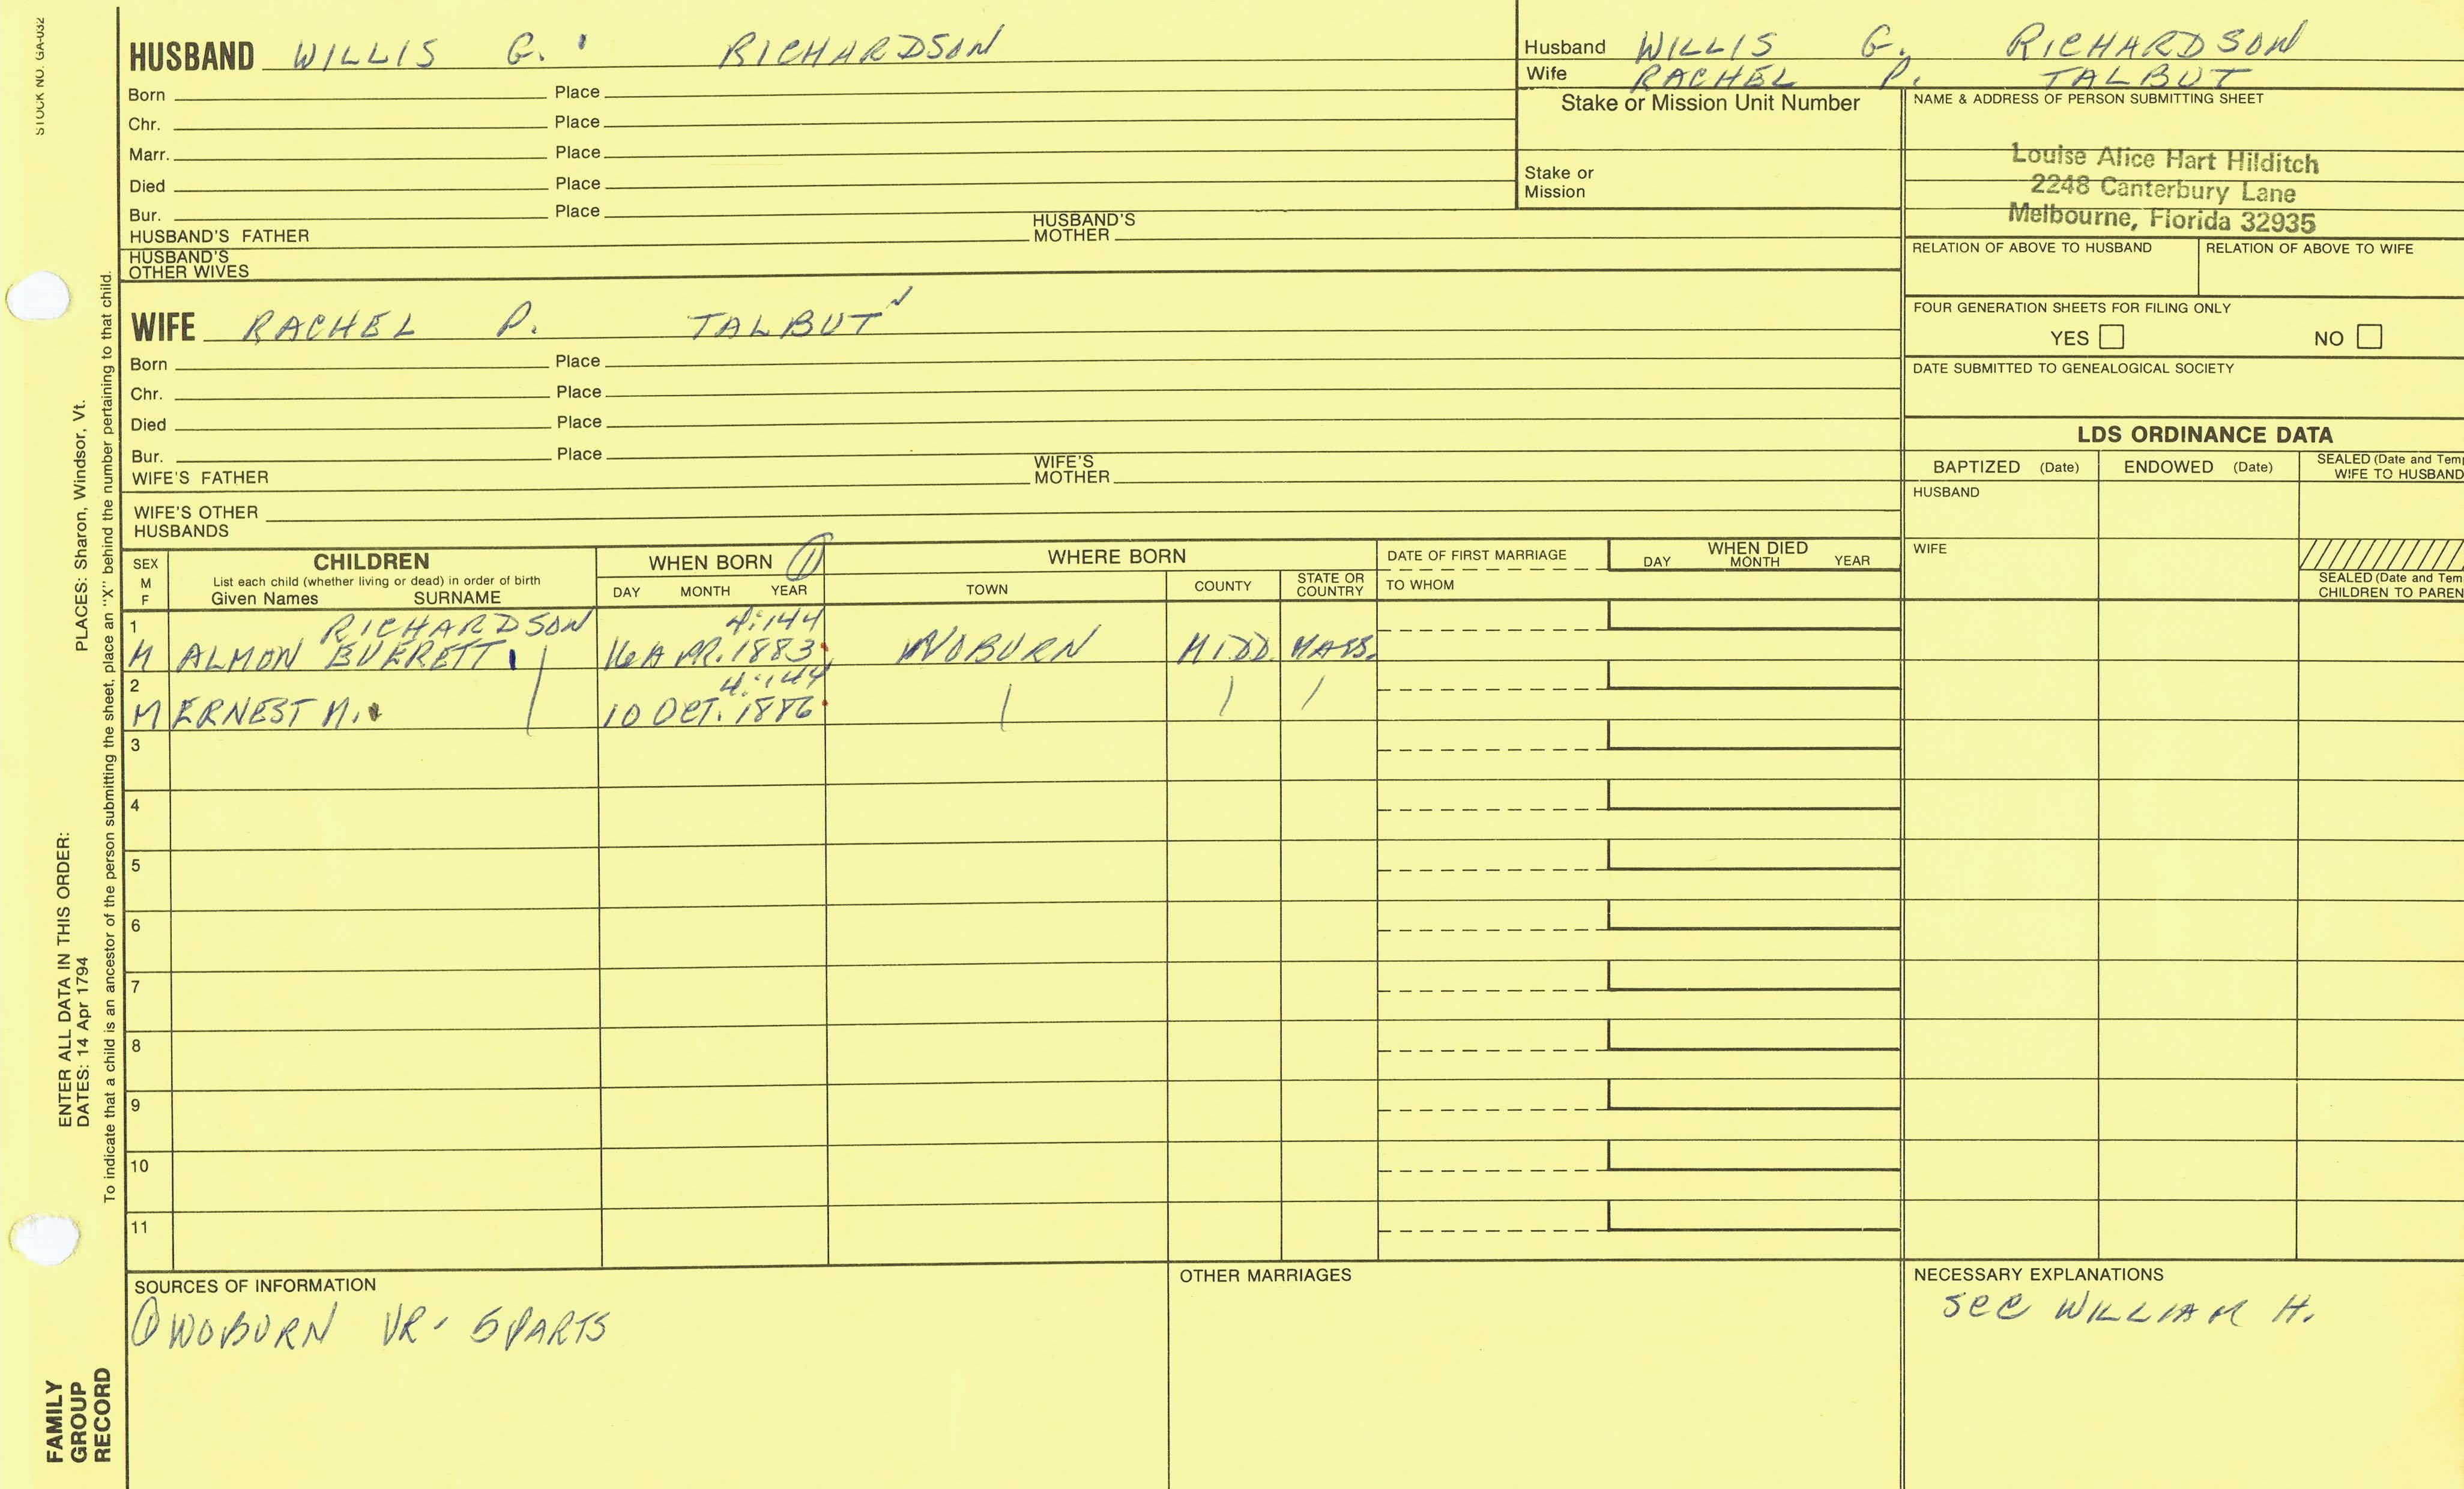 STOCK NO. GA-032
HUSBAND WILLIS G. RICHARDSON
Born Place
Chr. Place
Marr. Place
Died Place
Bur. Place
HUSBAND'S FATHER HUSBAND'S MOTHER
HUSBAND'S OTHER WIVES
Husband WILLIS G. RICHARDSON
Wife RACHEL P. TALBUT
Stake or Mission Unit Number
Stake or Mission
NAME & ADDRESS OF PERSON SUBMITTING SHEET
Louise Alice Hart Hilditch
2248 Canterbury Lane
Melbourne, Florida 32935
RELATION OF ABOVE TO HUSBAND RELATION OF ABOVE TO WIFE
FOUR GENERATION SHEETS FOR FILING ONLY
YES NO
DATE SUBMITTED TO GENEALOGICAL SOCIETY
WIFE RACHEL P. TALBUT
Born Place
Chr. Place
Died Place
Bur. Place
WIFE'S FATHER WIFE'S MOTHER
WIFE'S OTHER HUSBANDS
LDS ORDINANCE DATA
BAPTIZED (Date) ENDOWED (Date) SEALED (Date and Tem
WIFE TO HUSBAND
HUSBAND
WIFE
SEALED (Date and Tem
CHILDREN TO PAREN
SEX M F
CHILDREN
List each child (whether living or dead) in order of birth
Given Names SURNAME
WHEN BORN 1
DAY MONTH YEAR
WHERE BORN
TOWN COUNTY STATE OR COUNTRY
DATE OF FIRST MARRIAGE
TO WHOM
WHEN DIED
DAY MONTH YEAR
1 RICHARDSON 4:144
M ALMON EVERETT 16 APR. 1883 WOBURN MIDD. MASS.
2 4:144
M ERNEST M. 10 OCT. 1886
3
4
5
6
7
8
9
10
11
SOURCES OF INFORMATION
① WOBURN VR- 5 PARTS
OTHER MARRIAGES
NECESSARY EXPLANATIONS
See WILLIAM H.
ENTER ALL DATA IN THIS ORDER:
DATES: 14 Apr 1794 PLACES: Sharon, Windsor, Vt.
To indicate that a child is an ancestor of the person submitting the sheet, place an "X" behind the number pertaining to that child.
FAMILY
GROUP
RECORD